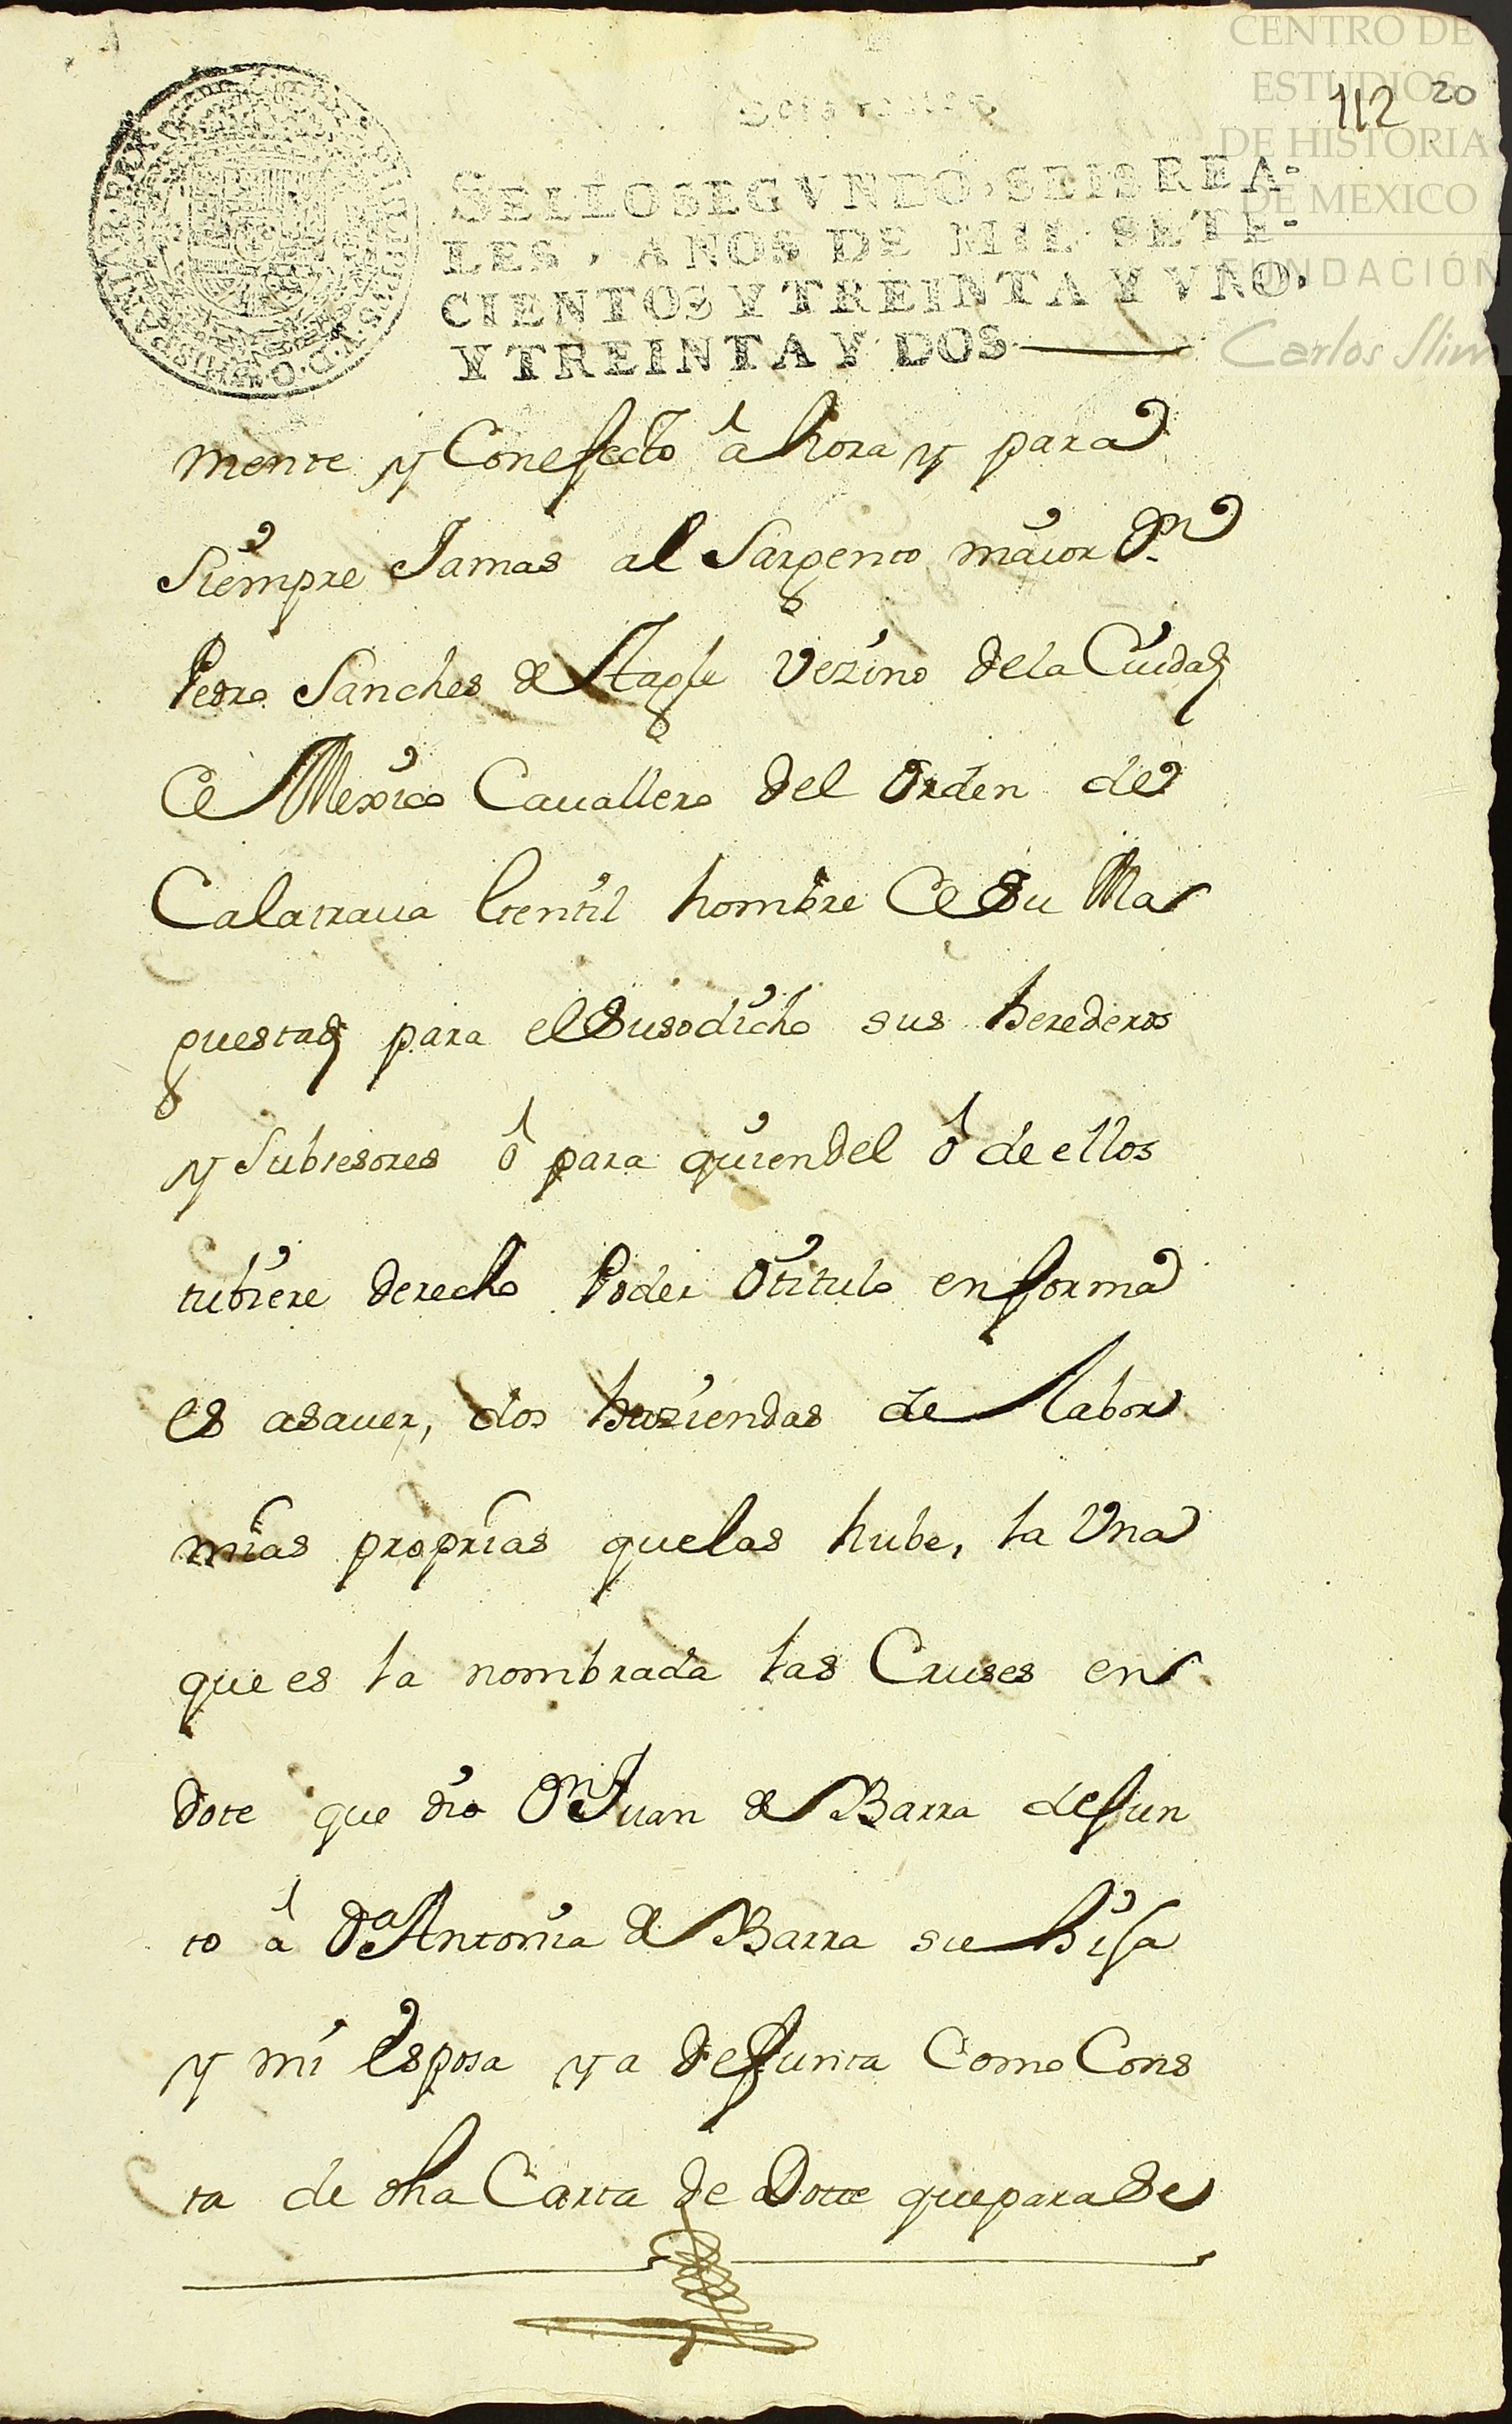 CENTRO DE
ESTUDIOS
DE HISTORIA
DE MEXICO
FUNDACIÓN
Carlos Slim
112 20
Seis reales
SELLO SEGVNDO, SEIS REA-
LES, AÑOS DE MIL SETE-
CIENTOS Y TREINTA Y VNO,
Y TREINTA Y DOS
mente y Conefecto â hora y para
Siempre Jamas al Sargento maior Dn
Pedro Sanches de Tagle Vezino dela Ciudad
de Mexico Cauallero del orden de
Calatraua Gentil hombre de Su Ma
gestad para el Susodicho sus herederos
y Subsesores ô para quiendel ô de ellos
tubiere derecho Poder Otitulo enforma
es asauer, dos haziendas de labor
mias proprias quelas hube, la Vna
que es la nombrada las Cruses en
dote que dio Dn Juan de Barra defun
to â Da Antonia de Barra su hija
y mi esposa ya defunta Como Cons
ta de dha Carta de Dote quepara de